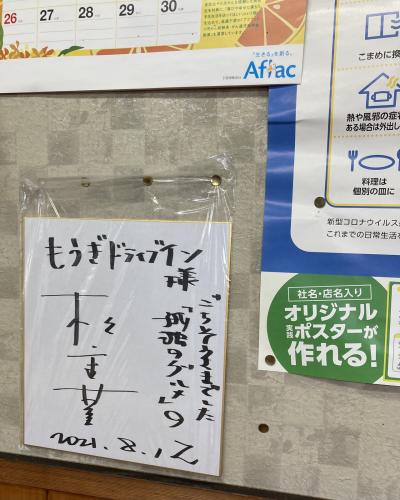 26
27
28
29
30
「生きる」を創る。
Aflac
もうぎドライブイン
様
ごちそうさまでした
「孤独のグルメ」の
松重豊
2021.8.12
こまめに換
熱や風邪の症状
ある場合は外出し
料理は
個別の皿に
新型コロナウイルス
これまでの日常生活
社名・店名入り
オリジナル
実践ポスターが
作れる!